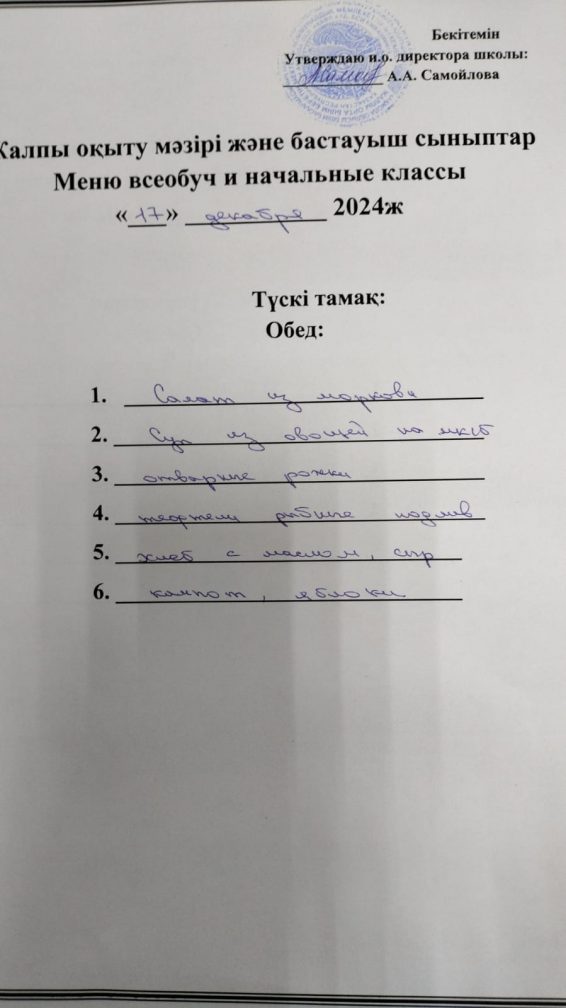 Бекітемін
Утверждаю и.о. директора школы:
А.А. Самойлова
Жалпы оқыту мәзірі және бастауыш сыныптар
Меню всеобуч и начальные классы
«17» декабря 2024ж
Түскі тамақ:
Обед:
1. Салат из моркови
2. Суп из овощей на мкб
3. отварные рожки
4. тефтели рыбные подлив
5. хлеб с маслом, сыр
6. компот, яблоки